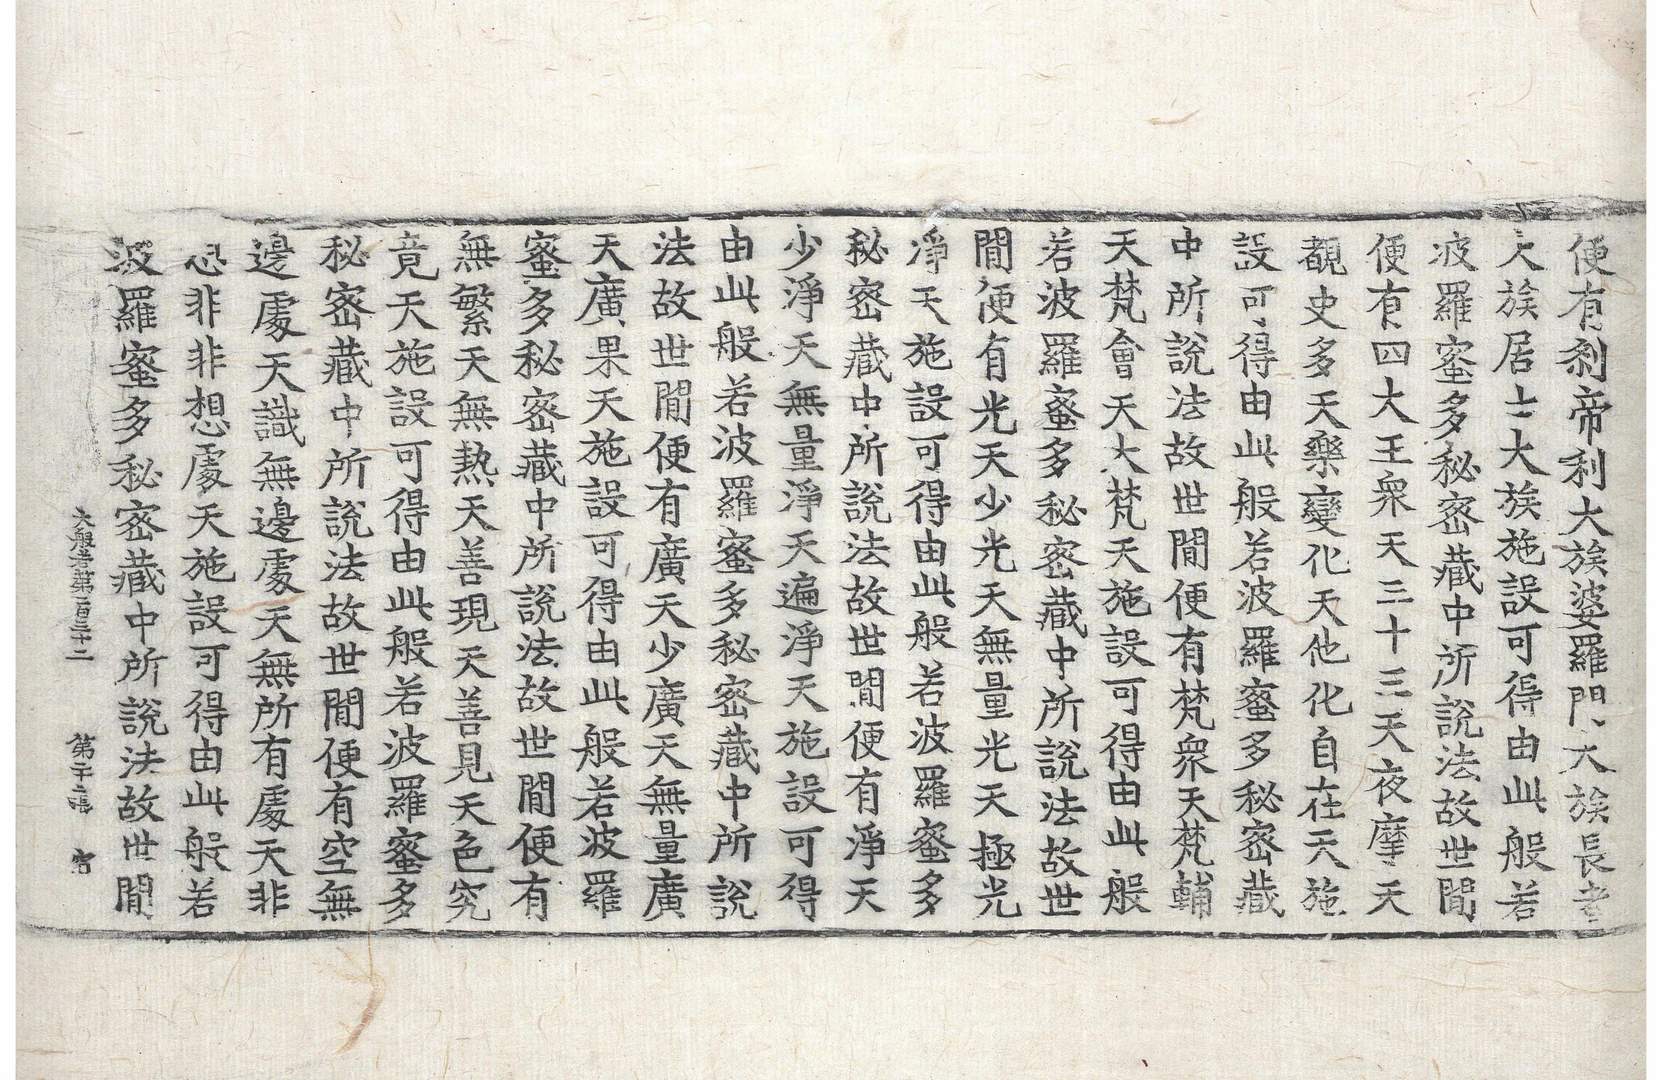 便有刹帝利大族婆羅門大族長者
大族居士大族施設可得由此般若
波羅蜜多秘密藏中所說法故世間
便有四大王衆天三十三天夜摩天
覩史多天樂變化天他化自在天施
設可得由此般若波羅蜜多秘密藏
中所說法故世間便有梵衆天梵輔
天梵會天大梵天施設可得由此般
若波羅蜜多秘密藏中所說法故世
間便有光天少光天無量光天極光
淨天施設可得由此般若波羅蜜多
秘密藏中所說法故世間便有淨天
少淨天無量淨天遍淨天施設可得
由此般若波羅蜜多秘密藏中所說
法故世間便有廣天少廣天無量廣
天廣果天施設可得由此般若波羅
蜜多秘密藏中所說法故世間便有
無繁天無熱天善現天善見天色究
竟天施設可得由此般若波羅蜜多
秘密藏中所說法故世間便有空無
邊處天識無邊處天無所有處天非
想非非想處天施設可得由此般若
波羅蜜多秘密藏中所說法故世間
大般若第一百三十二 第二十二張